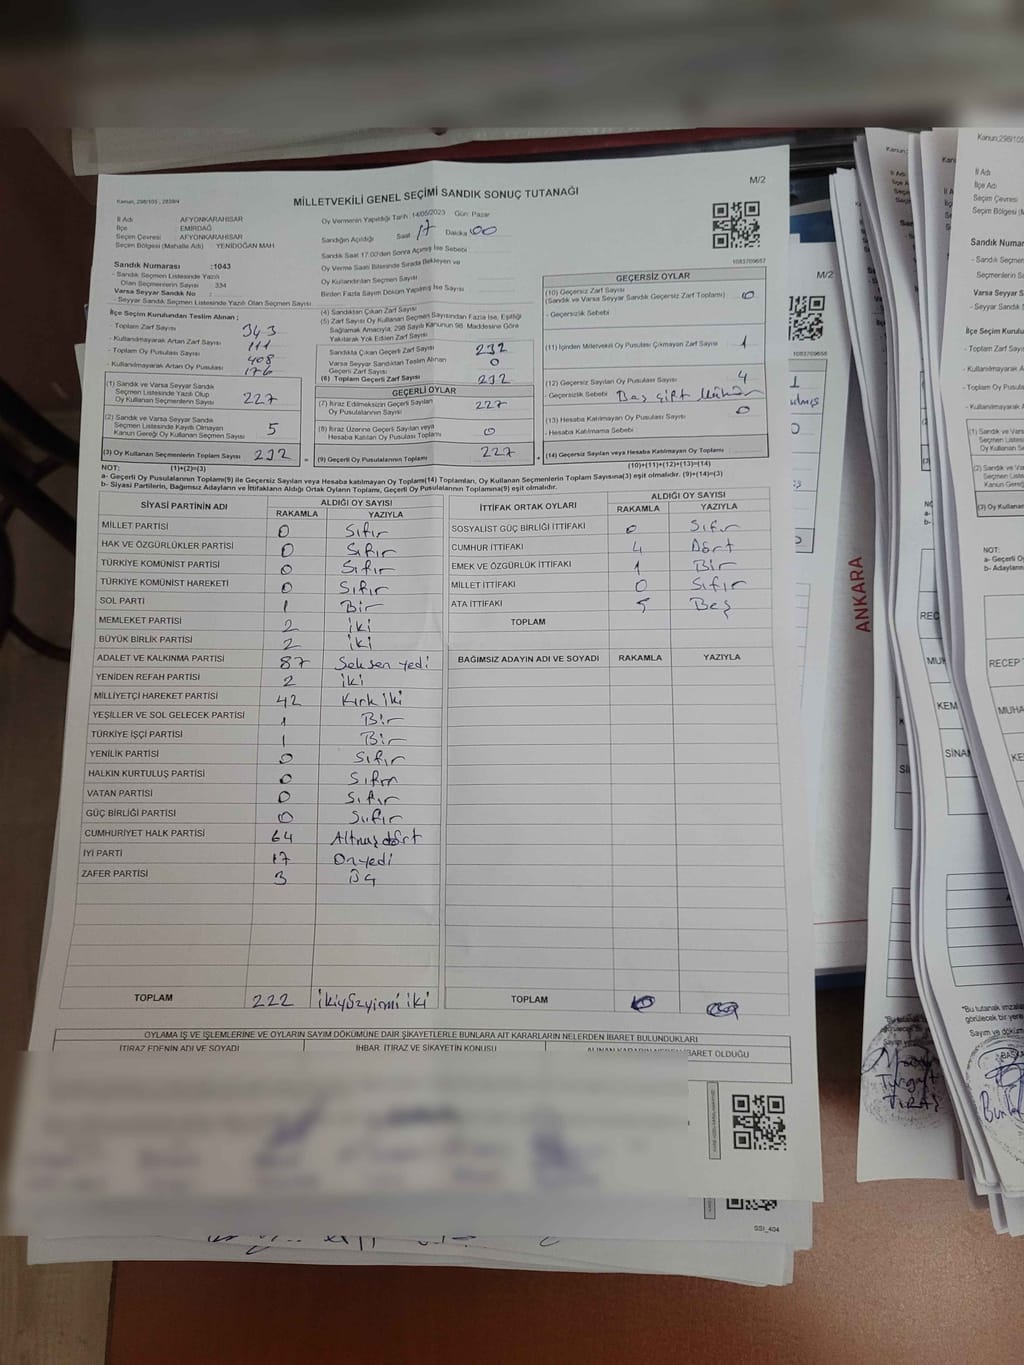 M/2
MİLLETVEKİLİ GENEL SEÇİMİ SANDIK SONUÇ TUTANAĞI
Kanun, 298/105 , 2839/4
İl Adı : AFYONKARAHİSAR
İlçe : EMİRDAĞ
Seçim Çevresi : AFYONKARAHİSAR
Seçim Bölgesi (Mahalle Adı) YENİDOĞAN MAH
Oy Vermenin Yapıldığı Tarih :14/05/2023 Gün: Pazar
Sandığın Açıldığı Saat 17 Dakika 00
Sandık Saat 17.00'den Sonra Açılmış İse Sebebi
Oy Verme Saati Bitiminde Sırada Bekleyen ve
Oy Kullandırılan Seçmen Sayısı
Birden Fazla Sayım Döküm Yapılmış İse Sayısı
1083709657
Sandık Numarası :1043
- Sandık Seçmen Listesinde Yazılı
Olan Seçmenlerin Sayısı 334
Varsa Seyyar Sandık No :
- Seyyar Sandık Seçmen Listesinde Yazılı Olan Seçmen Sayısı
İlçe Seçim Kurulundan Teslim Alınan ;
- Toplam Zarf Sayısı 343
- Kullanılmayarak Artan Zarf Sayısı 111
- Toplam Oy Pusulası Sayısı 408
- Kullanılmayarak Artan Oy Pusulası 176
(1) Sandık ve Varsa Seyyar Sandık
Seçmen Listesinde Yazılı Olup
Oy Kullanan Seçmenlerin Sayısı 227
(2) Sandık ve Varsa Seyyar Sandık
Seçmen Listesinde Kayıtlı Olmayan
Kanun Gereği Oy Kullanan Seçmen Sayısı 5
(3) Oy Kullanan Seçmenlerin Toplam Sayısı 232
(4) Sandıktan Çıkan Zarf Sayısı
(5) Zarf Sayısı Oy Kullanan Seçmen Sayısından Fazla İse, Eşitliği
Sağlamak Amacıyla, 298 Sayılı Kanunun 98. Maddesine Göre
Yakılarak Yok Edilen Zarf Sayısı
Sandıkta Çıkan Geçerli Zarf Sayısı 232
Varsa Seyyar Sandıktan Teslim Alınan
Geçerli Zarf Sayısı 0
(6) Toplam Geçerli Zarf Sayısı 232
GEÇERLİ OYLAR
(7) İtiraz Edilmeksizin Geçerli Sayılan
Oy Pusulalarının Sayısı 227
(8) İtiraz Üzerine Geçerli Sayılan veya
Hesaba Katılan Oy Pusulası Toplamı 0
(9) Geçerli Oy Pusulalarının Toplamı 227
GEÇERSİZ OYLAR
(10) Geçersiz Zarf Sayısı
(Sandık ve Varsa Seyyar Sandık Geçersiz Zarf Toplamı) 0
- Geçersizlik Sebebi
(11) İçinden Milletvekili Oy Pusulası Çıkmayan Zarf Sayısı 1
(12) Geçersiz Sayılan Oy Pusulası Sayısı 4
- Geçersizlik Sebebi : Beş çift Mühür
(13) Hesaba Katılmayan Oy Pusulası Sayısı 0
- Hesaba Katılmama Sebebi :
(14) Geçersiz Sayılan veya Hesaba Katılmayan Oy Toplamı
(10)+(11)+(12)+(13)=(14)
NOT: (1)+(2)=(3)
a- Geçerli Oy Pusulalarının Toplamı(9) ile Geçersiz Sayılan veya Hesaba katılmayan Oy Toplamı(14) Toplamları, Oy Kullanan Seçmenlerin Toplam Sayısına(3) eşit olmalıdır. (9)+(14)=(3)
b- Siyasi Partilerin, Bağımsız Adayların ve İttifakların Aldığı Ortak Oyların Toplamı, Geçerli Oy Pusulalarının Toplamına(9) eşit olmalıdır.
SİYASİ PARTİNİN ADI ALDIĞI OY SAYISI
RAKAMLA YAZIYLA
MİLLET PARTİSİ 0 Sıfır
HAK VE ÖZGÜRLÜKLER PARTİSİ 0 Sıfır
TÜRKİYE KOMÜNİST PARTİSİ 0 Sıfır
TÜRKİYE KOMÜNİST HAREKETİ 0 Sıfır
SOL PARTİ 1 Bir
MEMLEKET PARTİSİ 2 iki
BÜYÜK BİRLİK PARTİSİ 2 iki
ADALET VE KALKINMA PARTİSİ 87 Seksen yedi
YENİDEN REFAH PARTİSİ 2 iki
MİLLİYETÇİ HAREKET PARTİSİ 42 Kırk iki
YEŞİLLER VE SOL GELECEK PARTİSİ 1 Bir
TÜRKİYE İŞÇİ PARTİSİ 1 Bir
YENİLİK PARTİSİ 0 Sıfır
HALKIN KURTULUŞ PARTİSİ 0 Sıfır
VATAN PARTİSİ 0 Sıfır
GÜÇ BİRLİĞİ PARTİSİ 0 Sıfır
CUMHURİYET HALK PARTİSİ 64 Altmış dört
İYİ PARTİ 17 Onyedi
ZAFER PARTİSİ 3 Üç
TOPLAM 222 ikiyüzyirmi iki
İTTİFAK ORTAK OYLARI ALDIĞI OY SAYISI
RAKAMLA YAZIYLA
SOSYALİST GÜÇ BİRLİĞİ İTTİFAKI 0 Sıfır
CUMHUR İTTİFAKI 4 Dört
EMEK VE ÖZGÜRLÜK İTTİFAKI 1 Bir
MİLLET İTTİFAKI 0 Sıfır
ATA İTTİFAKI 5 Beş
TOPLAM
BAĞIMSIZ ADAYIN ADI VE SOYADI RAKAMLA YAZIYLA
TOPLAM
OYLAMA İŞ VE İŞLEMLERİNE VE OYLARIN SAYIM DÖKÜMÜNE DAİR ŞİKAYETLERLE BUNLARA AİT KARARLARIN NELERDEN İBARET BULUNDUKLARI
İTİRAZ EDENİN ADI VE SOYADI İHBAR, İTİRAZ VE ŞİKAYETİN KONUSU
SSI_404
M/2
1083709656
ANKARA